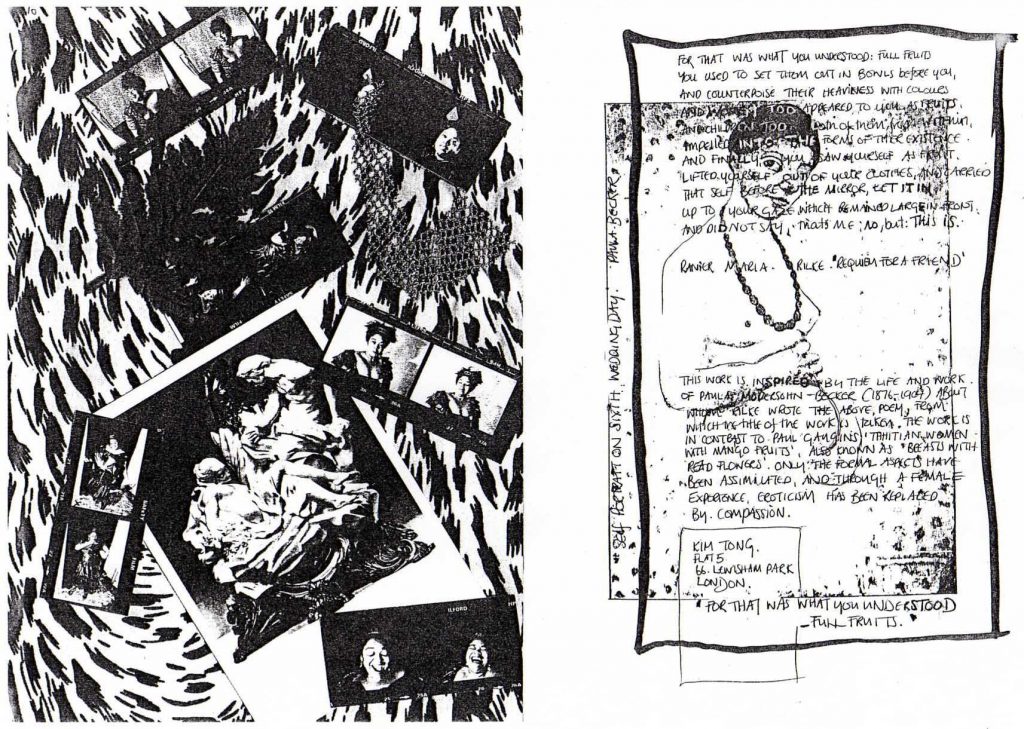 ILFORD
ILFORD
FOR THAT WAS WHAT YOU UNDERSTOOD: FULL FRUITS
YOU USED TO SET THEM OUT IN BOWLS BEFORE YOU,
AND COUNTERPOISE THEIR HEAVINESS WITH COLOURS
AND TOO APPEARED TO YOU AS FRUITS.
AND CHILDREN TOO, BOTH OF THEM FROM WITHIN,
IMPELLED INTO THE FORMS OF THEIR EXISTENCE
AND FINALLY YOU SAW YOURSELF AS FRUIT.
LIFTED YOURSELF OUT OF YOUR CLOTHES, AND CARRIED
THAT SELF BEFORE THE MIRROR, LET IT IN
UP TO YOUR GAZE WHICH REMAINED LARGE IN FRONT.
AND DID NOT SAY, THATS ME; NO, BUT: THIS IS.
RANIER MARIA. RILKE. 'REQUIEM FOR A FRIEND'
SELF PORTRAIT ON SIXTH WEDDING DAY. PAULA BECKER
THIS WORK IS INSPIRED BY THE LIFE AND WORK
OF PAULA MODERSOHN-BECKER (1876-1907) ABOUT
WHOM RILKE WROTE THE ABOVE, POEM, FROM
WHICH THE TITLE OF THE WORK IS TAKEN. THE WORK IS
IN CONTRAST TO PAUL GAUGINS' 'TAHITIAN WOMEN
WITH MANGO FRUITS'. ALSO KNOWN AS 'BREASTS WITH
READ FLOWERS'. ONLY THE FORMAL ASPECTS HAVE
BEEN ASSIMILATED, AND THROUGH A FEMALE
EXPERIENCE, EROTICISM HAS BEEN REPLACED
BY. COMPASSION.
KIM TONG.
FLAT 5
66. LEWISHAM PARK
LONDON.
"FOR THAT WAS WHAT YOU UNDERSTOOD
–FULL FRUITS."